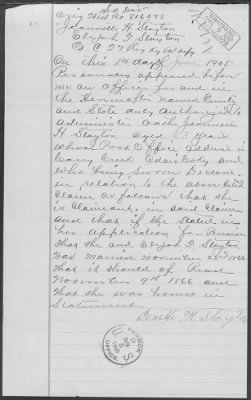 S. Div
Orig Wid No 816098
Jeannett H. Slayton
Elijah P. Slayton
Co C 27 Regt Ky Vol Inf
On this 1st day of June 1905
Personally appeared before
me an Officer for and in
the Hereinafter named County
and State duly Authorized to
administer Oaths Jeannett
H Slayton aged 63 years
whose Post Office address is
Casey Creek Adair Co Ky and
who being Sworn Declares
in relation to the above
Claim as follows that she
is Claimant in said Claim
and that if she stated in
her Application for Pension
that she and Elijah P. Slayton
was married November 1866
that it should of Read
November 9th 1866 and
that she was honest in
Statement
H Slayton
PENSION OFFICE
U S